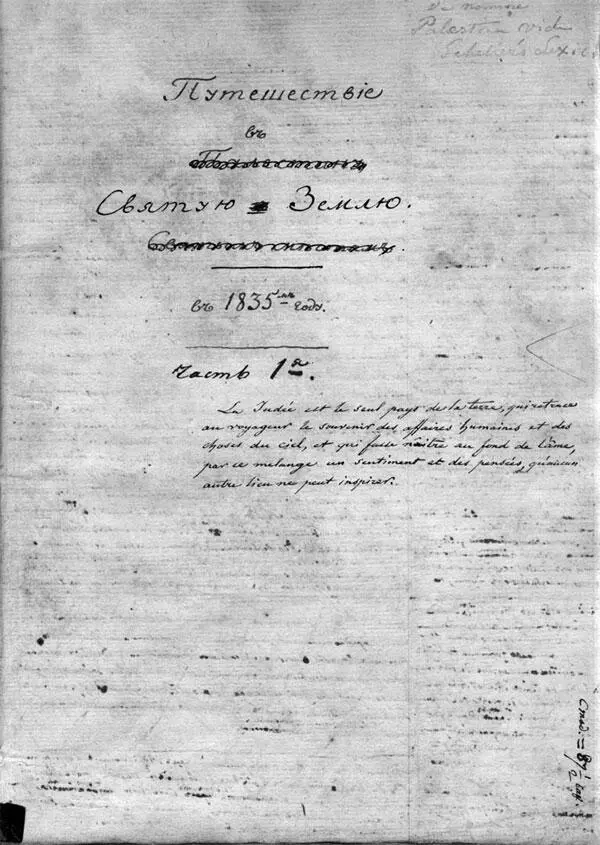 de nomine
Palestina vide
Lexic.
Путешествіе
въ
Святую Землю.
въ 1835мъ году.
Часть 1я.
La Judée est le seul pays de la terre, qui retrace
au voyageur le souvenir des affaires humaines et des
choses du ciel, et qui fasse naître au fond de l'âme,
par ce mélange un sentiment et des pensées, qu'aucun
autre lieu ne peut inspirer.
= 87 1/2